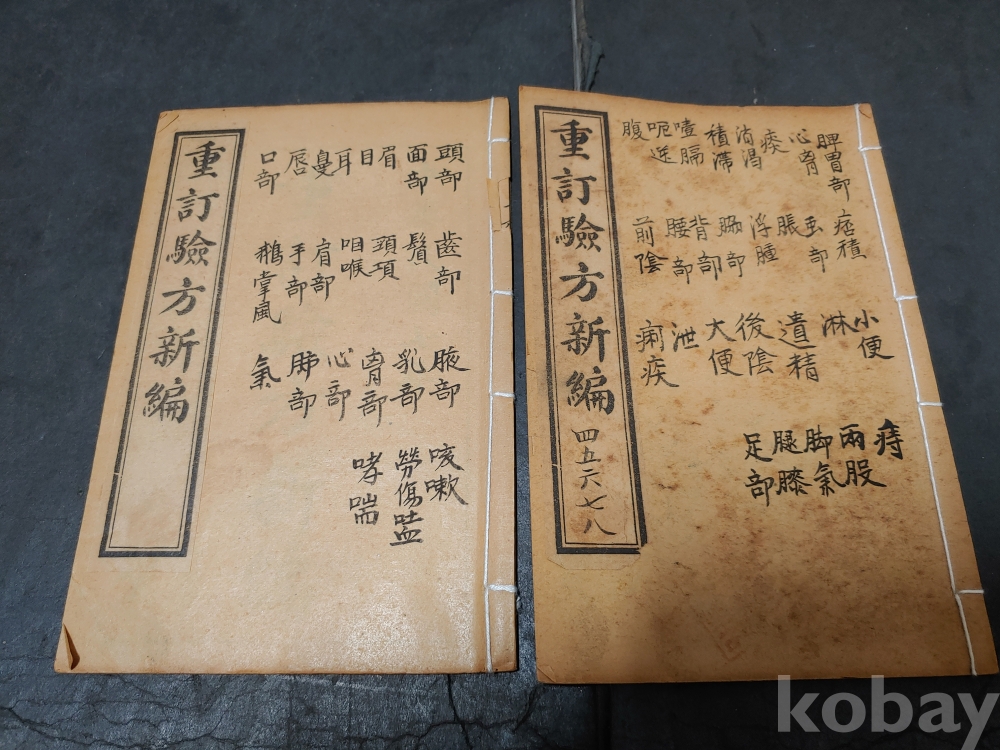 重訂驗方新編
頭部
面部
眉
目
耳
鼻
唇
口部
齒部
鬚
頸項
咽喉
肩部
手部
鵝掌風
腋部
乳部
胷部
心部
肺部
氣
咳嗽
勞傷吐血
哮喘
重訂驗方新編
四五六七八
脾胃部
心胷
痰
消渴
積滯
噎膈
呃逆
腹
痞積
虫部
脹
浮腫
脇部
背部
腰部
前陰
小便
淋
遺精
後陰
大便
泄
痢疾
痔
兩股
脚氣
腿膝
足部
kobay